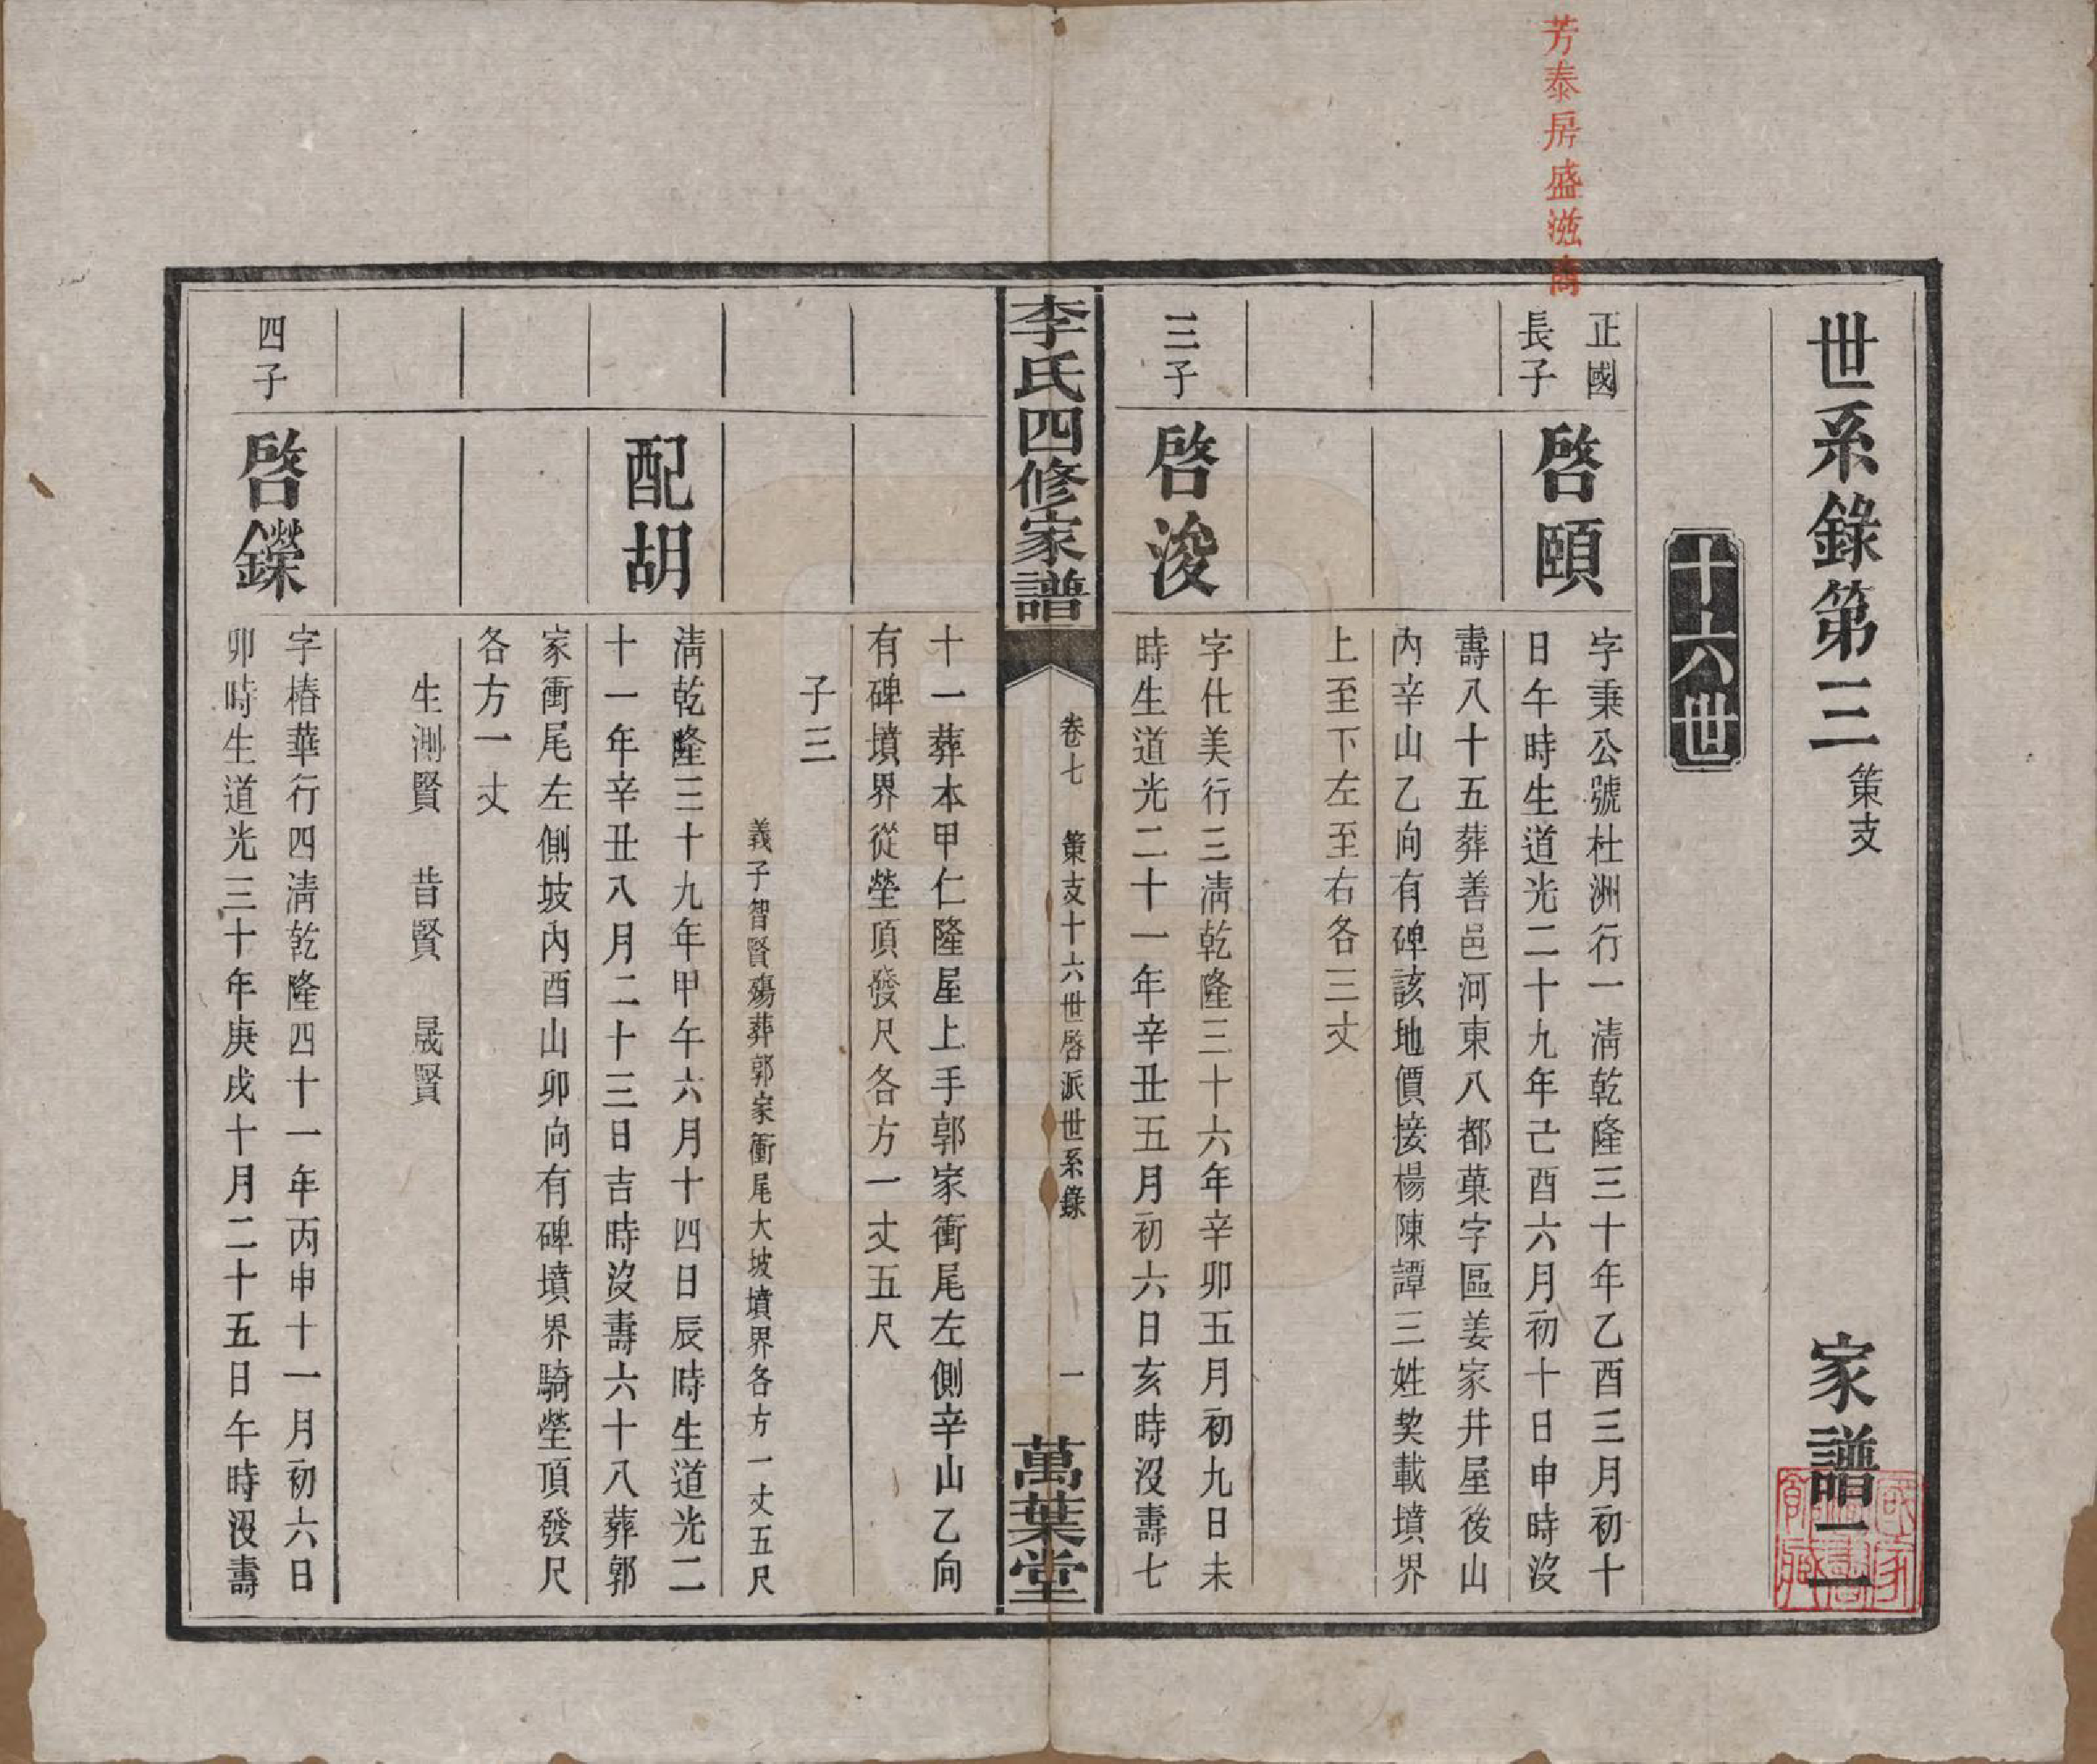 芳泰房盛滋商
世系錄第三 策支
家譜二一
十六世
正國
長子
啓頤
字秉公號杜洲行一淸乾隆三十年乙酉三月初十
日午時生道光二十九年己酉六月初十日申時沒
壽八十五葬善邑河東八都菓字區姜家井屋後山
內辛山乙向有碑該地價接楊陳譚三姓契載墳界
上至下左至右各三丈
三子
啓浚
字仕美行三淸乾隆三十六年辛卯五月初九日未
時生道光二十一年辛丑五月初六日亥時沒壽七
李氏四修家譜
卷七 策支十六世啓派世系錄
一
萬葉堂
十一葬本甲仁隆屋上手郭家衝尾左側辛山乙向
有碑墳界從塋頂發尺各方一丈五尺
子三
義子智賢殤葬郭家衝尾大坡墳界各方一丈五尺
配胡
淸乾隆三十九年甲午六月十四日辰時生道光二
十一年辛丑八月二十三日吉時沒壽六十八葬郭
家衝尾左側坡內酉山卯向有碑墳界騎塋頂發尺
各方一丈
生測賢 昔賢 晟賢
四子
啓鑠
字椿華行四淸乾隆四十一年丙申十一月初六日
卯時生道光三十年庚戌十月二十五日午時沒壽